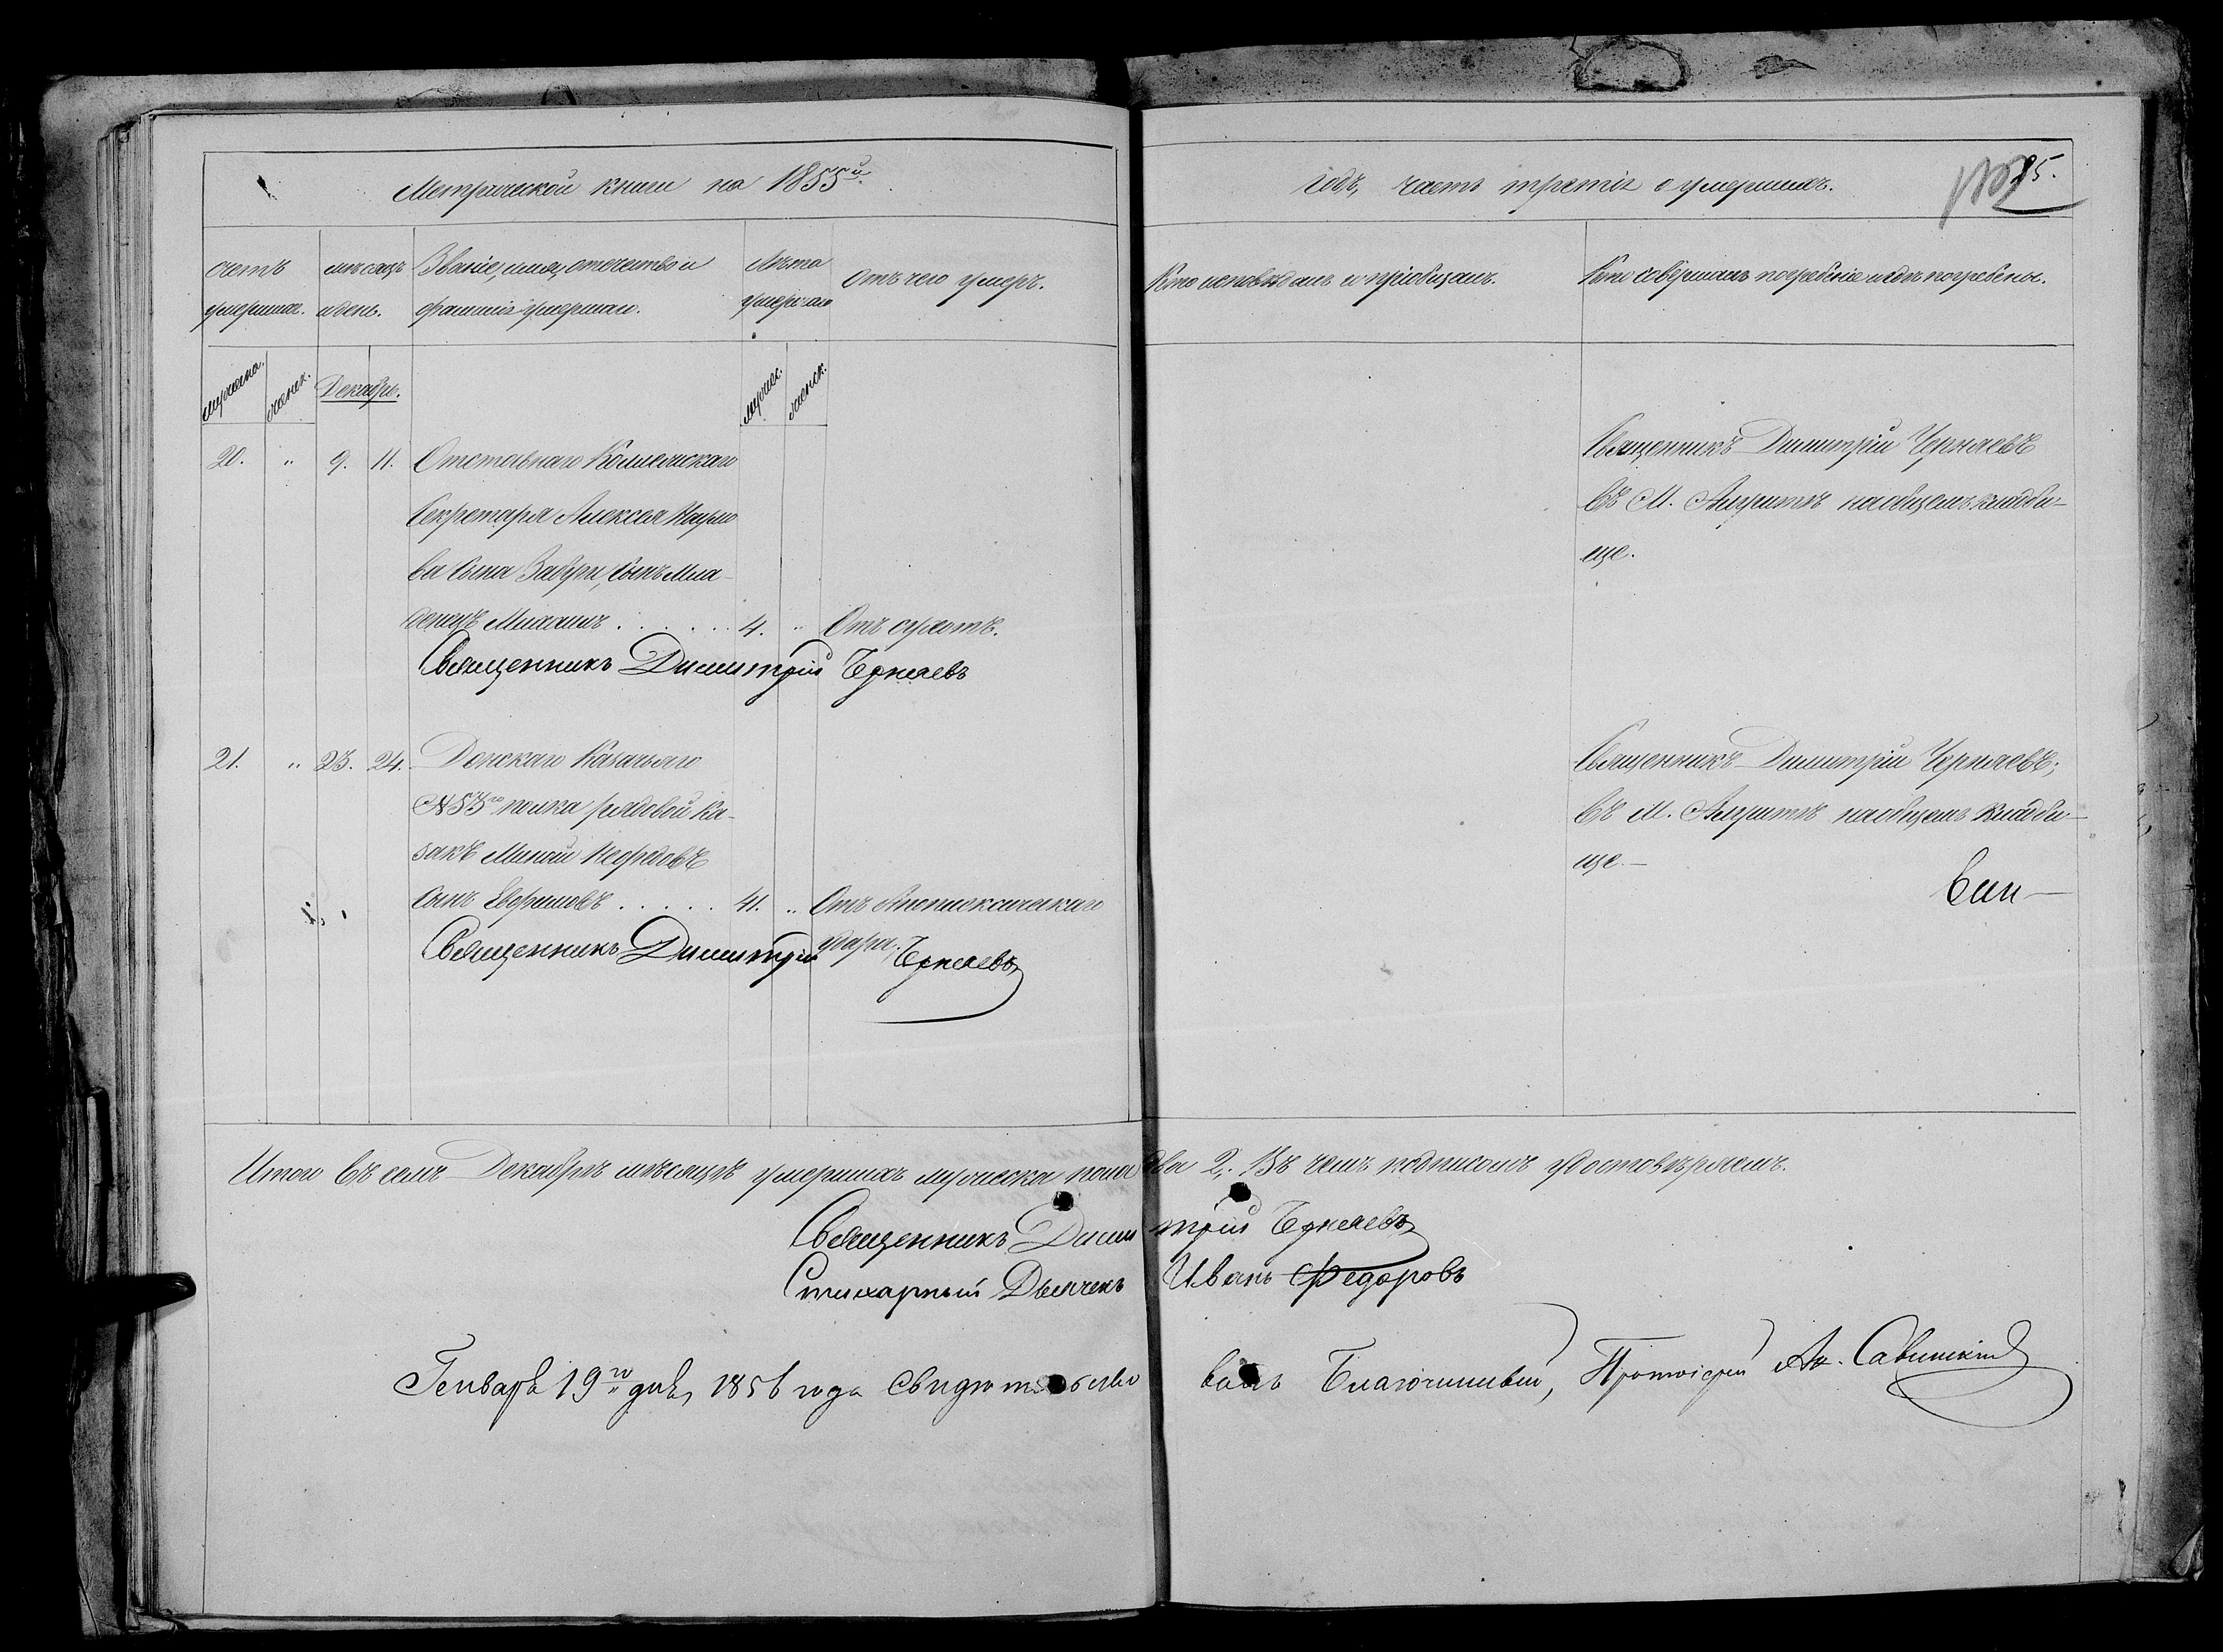 Метрической книги на 1855й
годъ, часть третія о умершихъ.
85.
счетъ умершихъ.
мѣсяцъ и день.
Званіе, имя, отечество и фамилія умершаго.
Лѣта умершаго
Отъ чего умеръ.
Кто исповѣдалъ и пріобщалъ.
Кто совершалъ погребеніе и гдѣ погребены.
мужеска.
женск.
Декабрь.
мужес.
женск.
20. " 9. 11. Отставнаго Коллежскаго
Секретаря Алексея
сына сынъ Мла-
денецъ Михаилъ . . . . . . 4. " Отъ сухотъ.
Священникъ Димитрій Черняевъ
въ М. Алуштѣ на общемъ кладби-
ще.
Священникъ Димитрій Черняевъ
21. " 23. 24. Донскаго Казачьяго
№ 53го полка рядовой ка-
закъ Минай
сынъ . . . . . 41. " Отъ Апоплексическаго
удара.
Священникъ Димитрій Черняевъ;
въ М. Алуштѣ на общемъ кладби-
ще.—
Священникъ Димитрій Черняевъ
Итого въ семъ Декабрѣ мѣсяцѣ умершихъ мужеска пола два 2. Въ чемъ подписомъ удостовѣряемъ.
Священникъ Димитрій Черняевъ
Стихарный Дьячекъ Иванъ Федоровъ
Генваря 19го дня, 1856 года свидѣтельствовалъ Благочинный, Протоіерей